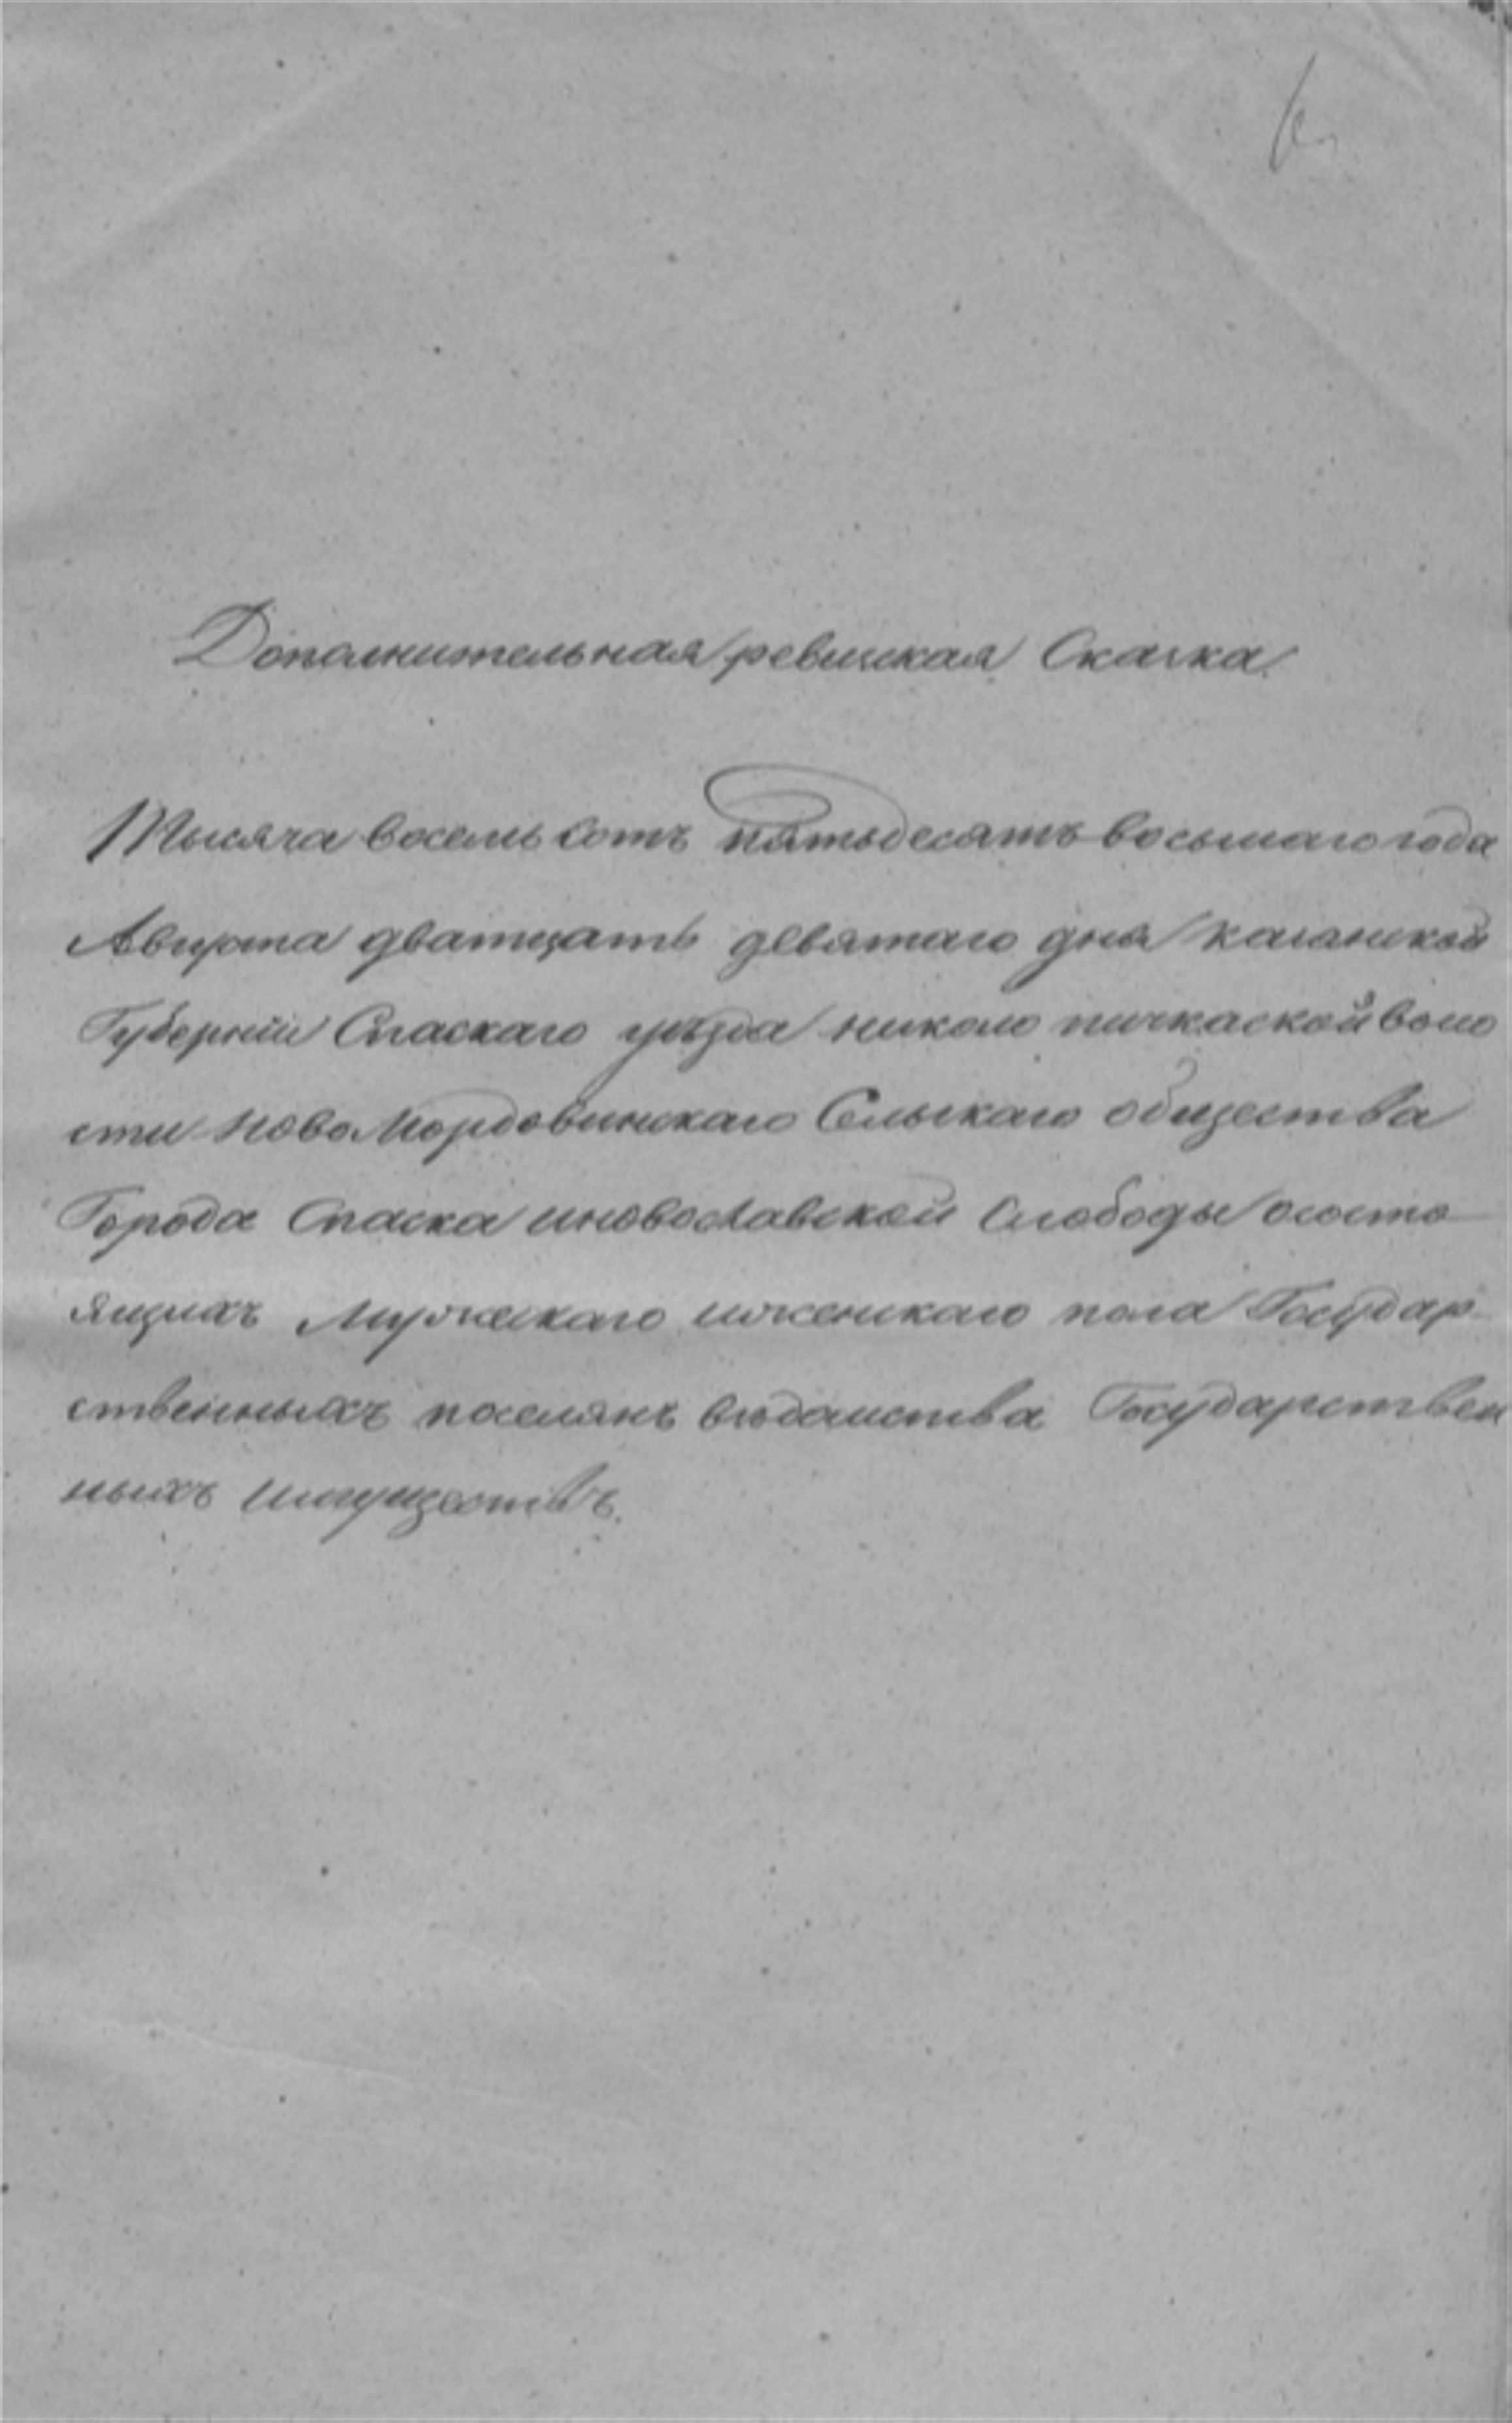 Дополнительная ревиская Сказка
Тысяча восемь сотъ пятьдесятъ восьмаго года
Августа дватцать девятаго дня Казанской
Губернiи Спаскаго уѣзда николо пичкаской воло
сти ново Мордовинскаго Сельскаго общества
Города Спаска иновославской Слободы ососто
ящихъ Мужескаго иженскаго пола Государ-
ственныхъ поселянъ вѣдомства Государствен
ныхъ имуществъ.